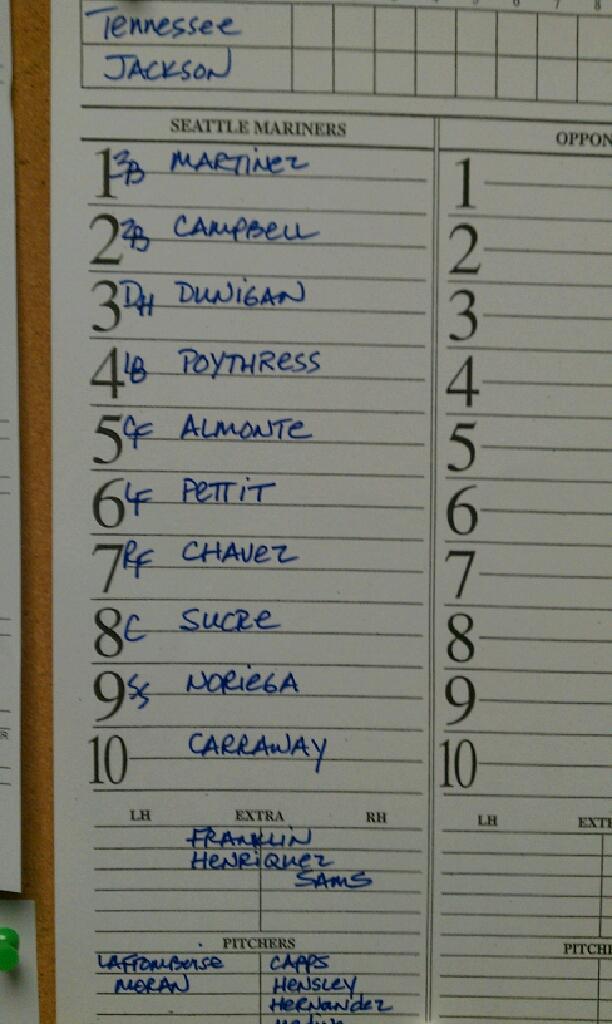 5 6 7 8
Tennessee
JACKSON
SEATTLE MARINERS
1 3B MARTINEZ
2 2B CAMPBELL
3 DH DUNIGAN
4 1B POYTHRESS
5 CF ALMONTE
6 LF PETTIT
7 RF CHAVEZ
8 C SUCRE
9 SS NORIEGA
10 CARRAWAY
LH EXTRA RH
FRANKLIN
HENRIQUEZ
SAMS
PITCHERS
LAFROMBOISE CAPPS
MORAN HENSLEY
HERNANDEZ
OPPON
1
2
3
4
5
6
7
8
9
10
LH EXTE
PITCHE